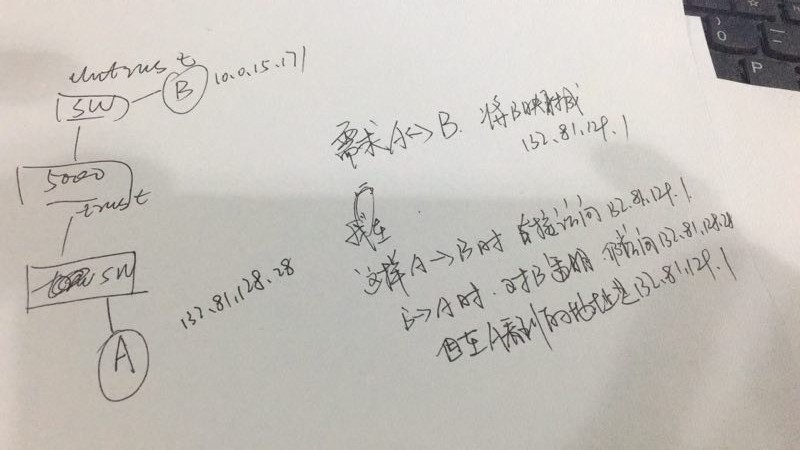 untrust
SW
B
10.0.15.171
5000
trust
SW
132.81.128.28
A
需求 A<->B. 将B映射成
132.81.129.1
我在
这样 A->B时 直接访问 132.81.129.1
B->A时. 对B透明. 你访问132.81.128.28
但在A看到的地址是132.81.129.1
O
P